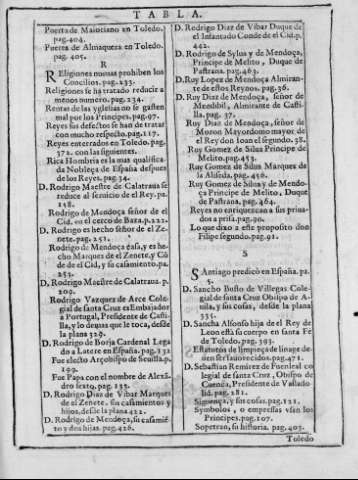 TABLA.
Puerta de Maiociano en Toledo.
pag.404.
Puerta de Almaquera en Toledo.
pag. 405.
R
Religiones nueuas prohiben los
Concilios. pag.233.
Religiones se ha tratado reducir a
menos numero. pag.234.
Rentas de las yglesias no se gasten
mal por los Principes. pag.97.
Reyes sus defectos se han de tratar
con mucho respecto. pag.117.
Reyes enterrados en Toledo. pag.
372. con las siguientes.
Rica Hombria es la mas qualifica
da Nobleça de España despues
de los Reyes. pag.34.
D. Rodrigo Maestre de Calatraua se
reduce al seruicio de el Rey. pa.
158.
D. Rodrigo de Mendoça señor de el
Cid. en el cerco de Baza. p.222.
D. Rodrigo es hecho señor de el Ze
nete. pag. 251.
D. Rodrigo de Mendoça casa, y es he
cho Marques de el Zenete, y Cõ
de de el Cid, y su casamiento. pa.
253.
D. Rodrigo Maestre de Calatraua. p.
209.
Rodrigo Vazquez de Arce Cole
gial de santa Cruz es Embajador
a Portugal, Presidente de Casti
lla, y lo demas que le toca, desde
la plana 329.
D. Rodrigo de Borja Cardenal Lega
do a Latere en España. pag.132
Fue electo Arçobispo de Seuilla. p.
199.
Fue Papa con el nombre de Alexã
dro sexto. pag. 232.
D. Rodrigo Diaz de Vibar Marques
de el Zenete. sus casamientos y
hijos, desde la plana 422.
D. Rodrigo de Mendoça, su casamiẽ
to y dos hijas. pag.426.
D. Rodrigo Diaz de Vibar Duque de
el Infantado Conde de el Cid. p.
442.
D. Rodrigo de Sylua y de Mendoça,
Principe de Melito, Duque de
Pastrana. pag.463.
D. Ruy Lopez de Mendoça Almiran
te de estos Reynos. pag.36.
D. Ruy Diaz de Mendoça, señor de
Mendibil, Almirante de Casti
lla. pag. 37.
Ruy Diaz de Mendoça, señor de
Moron Mayordomo mayor de
el Rey don Ioan el segundo. 38.
Ruy Gomez de Silua Principe de
Melito. pag.453.
Ruy Gomez de Silua Marques de
la Aliseda. pag.458.
Ruy Gomez de Silua y de Mendo
ça Principe de Melito, Duque
de Pastrana. pag.464.
Reyes no enriquezcan a sus priua
dos a prisa. pag.90.
Lo que dixo a este proposito don
Filipe segundo. pag.91.
S
Santiago predicò en España. pa.
5.
D. Sancho Busto de Villegas Cole
gial de santa Cruz Obispo de A-
uila, y sus cosas, desde la plana
335.
D. Sancha Alfonso hija de el Rey de
Leon està su cuerpo en santa Fe
de Toledo. pag.393.
Estatutos de limpieça de linage de-
uen ser fauorecidos. pag.471.
D. Sebastian Ramirez de Fuenleal co
legial de santa Cruz, Obispo de
Cuenca, Presidente de Vallado
lid. pag.281.
Siguença, y sus cosas. pag.121.
Symbolos, o empressas vsen los
Principes. pag.107.
Sopetran, su historia. pag.403.
Toledo